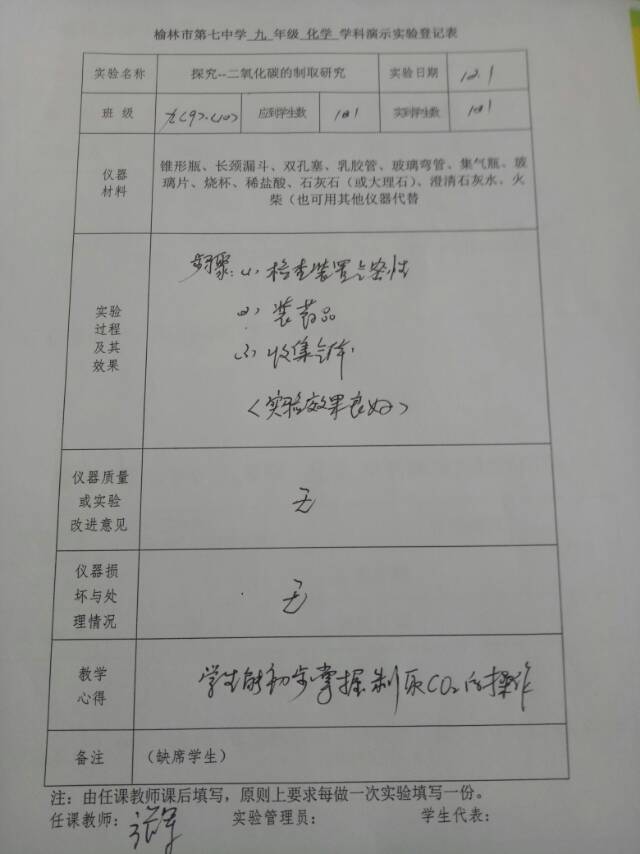 榆林市第七中学 九 年级 化学 学科演示实验登记表
实验名称 探究--二氧化碳的制取研究 实验日期 12.1
班 级 九(9).(10) 应到学生数 101 实到学生数 101
仪器
材料
锥形瓶、长颈漏斗、双孔塞、乳胶管、玻璃弯管、集气瓶、玻
璃片、烧杯、稀盐酸、石灰石（或大理石）、澄清石灰水、火
柴（也可用其他仪器代替
实验
过程
及其
效果
步骤:(1)检查装置气密性
(2)装药品
(3)收集气体
<实验效果良好>
仪器质量
或实验
改进意见
无
仪器损
坏与处
理情况
无
教学
心得
学生能初步掌握制取CO2的操作
备注 （缺席学生）
注：由任课教师课后填写，原则上要求每做一次实验填写一份。
任课教师： 实验管理员： 学生代表：